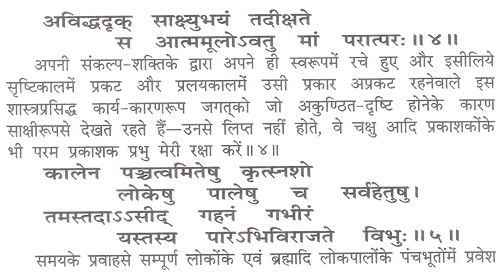 अविद्धदृक् साक्ष्युभयं तदीक्षते
स आत्ममूलोऽवतु मां परात्परः॥४॥
अपनी संकल्प-शक्तिके द्वारा अपने ही स्वरूपमें रचे हुए और इसीलिये
सृष्टिकालमें प्रकट और प्रलयकालमें उसी प्रकार अप्रकट रहनेवाले इस
शास्त्रप्रसिद्ध कार्य-कारणरूप जगत्‌को जो अकुण्ठित-दृष्टि होनेके कारण
साक्षीरूपसे देखते रहते हैं—उनसे लिप्त नहीं होते, वे चक्षु आदि प्रकाशकोंके
भी परम प्रकाशक प्रभु मेरी रक्षा करें॥४॥
कालेन पञ्चत्वमितेषु कृत्स्नशो
लोकेषु पालेषु च सर्वहेतुषु।
तमस्तदाऽऽसीद् गहनं गभीरं
यस्तस्य पारेऽभिविराजते विभुः॥५॥
समयके प्रवाहसे सम्पूर्ण लोकोंके एवं ब्रह्मादि लोकपालोंके पंचभूतोंमें प्रवेश